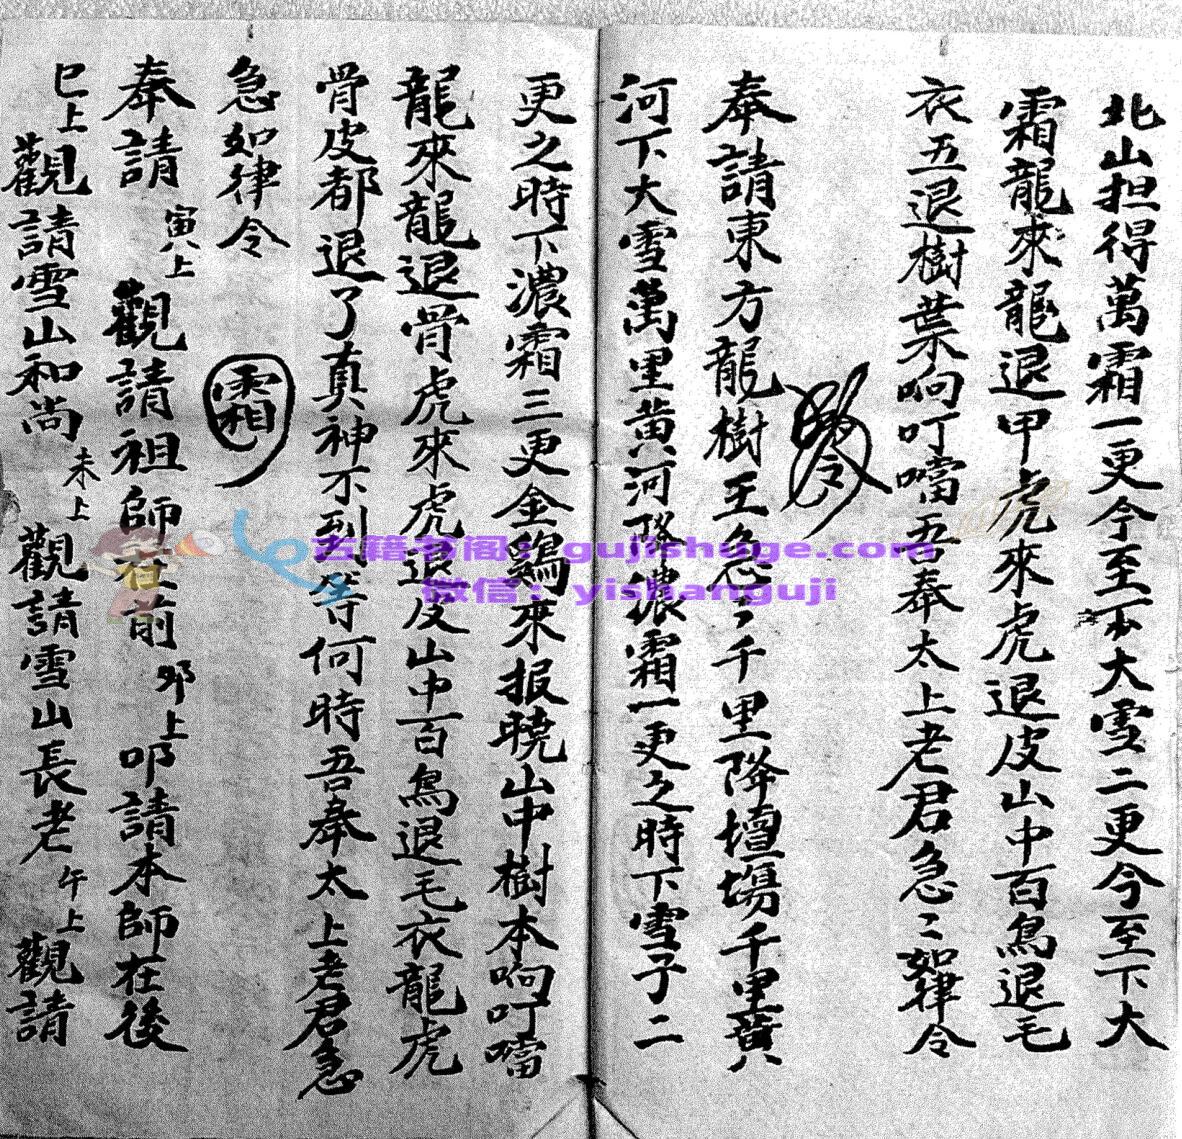 北山担得萬霜一更今至下大雪二更今至下大
霜龍來龍退甲虎來虎退皮山中百鳥退毛
衣五退樹葉响叮噹吾奉太上老君急〻如律令
奉請東方龍樹王急〻千里降壇塲千里黄
河下大雪萬里黄河降濃霜一更之時下雪子二
更之時下濃霜三更金鷄來报曉山中樹本响叮噹
龍來龍退骨虎來虎退皮山中百鳥退毛衣龍虎
骨皮都退了真神不到等何時吾奉太上老君急
急如律令
霜
奉請 寅上 觀請祖師在前 卯上 叩請本師在後
巳上 觀請雪山和尚 未上 觀請雪山長老 午上 觀請
古籍书阁：gujishuge.com
微信：yishanguji